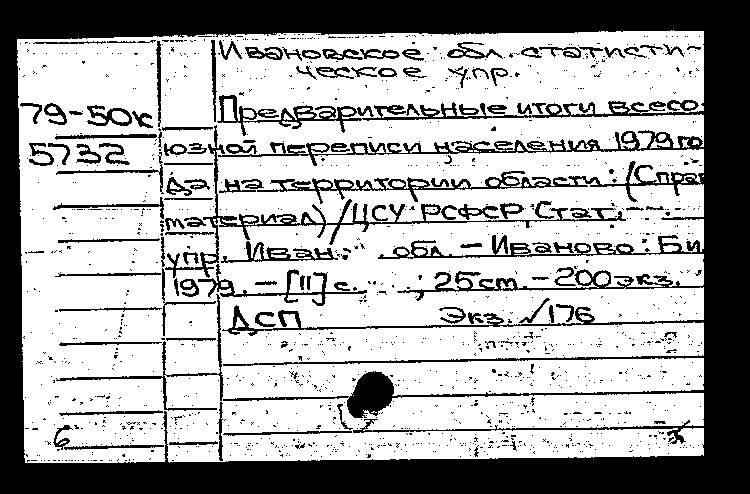 Ивановское обл. статисти-
ческое упр.
79-50к
5732
Предварительные итоги всесо
юзной переписи населения 1979 го
да на территории области: (Справ
материал) / ЦСУ РСФСР, Стат.
упр. Иван. обл. – Иваново: Би
1979. – [11] с. ; 25 см. – 200 экз.
ДСП Экз. √176
6